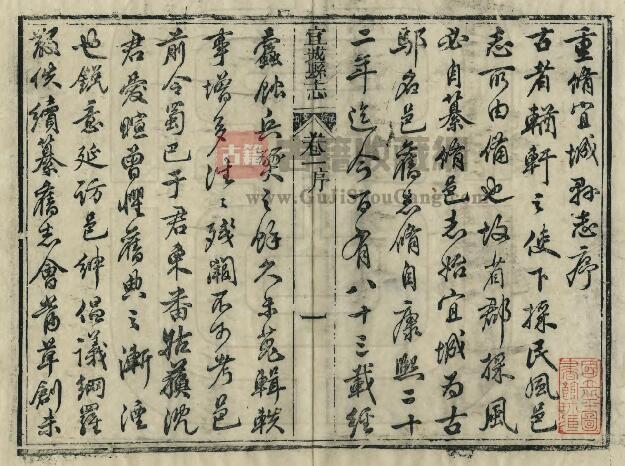 重脩宜城縣志序
古者輶軒之使下採民風邑
志所由備也故省郡採風
必自纂脩邑志始宜城為古
鄢名邑舊志脩自康熙二十
二年迄今百有八十三載經
宜城縣志
卷一序
一
蠹蝕兵燹之餘久未蒐輯軼
事增多往往殘闕不可考邑
前令蜀巴子君東番
君愛暄曾懼舊典之漸湮
也銳意延訪邑紳倡議網羅
散佚續纂舊志會當草創未
古籍
www.GuJiShouCang.com